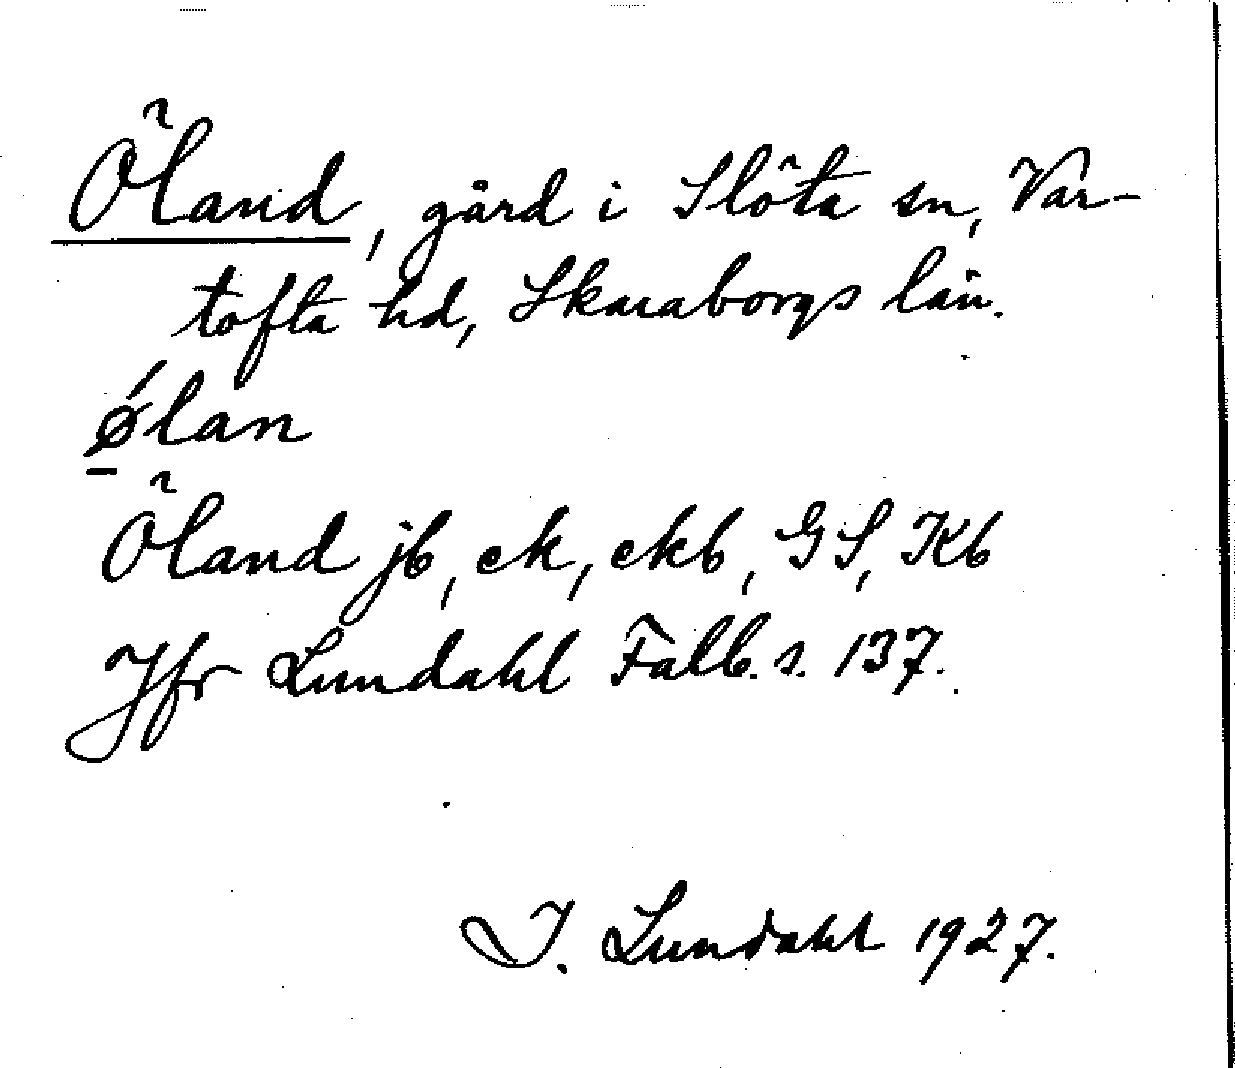 Öland, gård i Slöta sn, Var-
tofta hd, Skaraborgs län.
ǿlan
Öland jb, ek, ekb, GS, Kb
Jfr Lundahl Falb. s. 137.
I. Lundahl 1927.